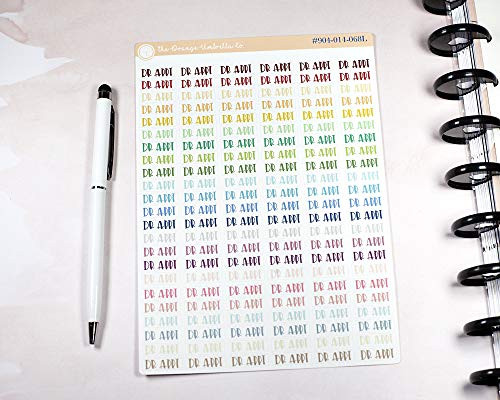 the Orange Umbrella Co. #904-014-068L
DR APPT DR APPT DR APPT DR APPT DR APPT DR APPT
DR APPT DR APPT DR APPT DR APPT DR APPT DR APPT
DR APPT DR APPT DR APPT DR APPT DR APPT DR APPT
DR APPT DR APPT DR APPT DR APPT DR APPT DR APPT
DR APPT DR APPT DR APPT DR APPT DR APPT DR APPT
DR APPT DR APPT DR APPT DR APPT DR APPT DR APPT
DR APPT DR APPT DR APPT DR APPT DR APPT DR APPT
DR APPT DR APPT DR APPT DR APPT DR APPT DR APPT
DR APPT DR APPT DR APPT DR APPT DR APPT DR APPT
DR APPT DR APPT DR APPT DR APPT DR APPT DR APPT
DR APPT DR APPT DR APPT DR APPT DR APPT DR APPT
DR APPT DR APPT DR APPT DR APPT DR APPT DR APPT
DR APPT DR APPT DR APPT DR APPT DR APPT DR APPT
DR APPT DR APPT DR APPT DR APPT DR APPT DR APPT
DR APPT DR APPT DR APPT DR APPT DR APPT DR APPT
DR APPT DR APPT DR APPT DR APPT DR APPT DR APPT
DR APPT DR APPT DR APPT DR APPT DR APPT DR APPT
DR APPT DR APPT DR APPT DR APPT DR APPT DR APPT
DR APPT DR APPT DR APPT DR APPT DR APPT DR APPT
DR APPT DR APPT DR APPT DR APPT DR APPT DR APPT
DR APPT DR APPT DR APPT DR APPT DR APPT DR APPT
DR APPT DR APPT DR APPT DR APPT DR APPT DR APPT
DR APPT DR APPT DR APPT DR APPT DR APPT DR APPT
DR APPT DR APPT DR APPT DR APPT DR APPT DR APPT